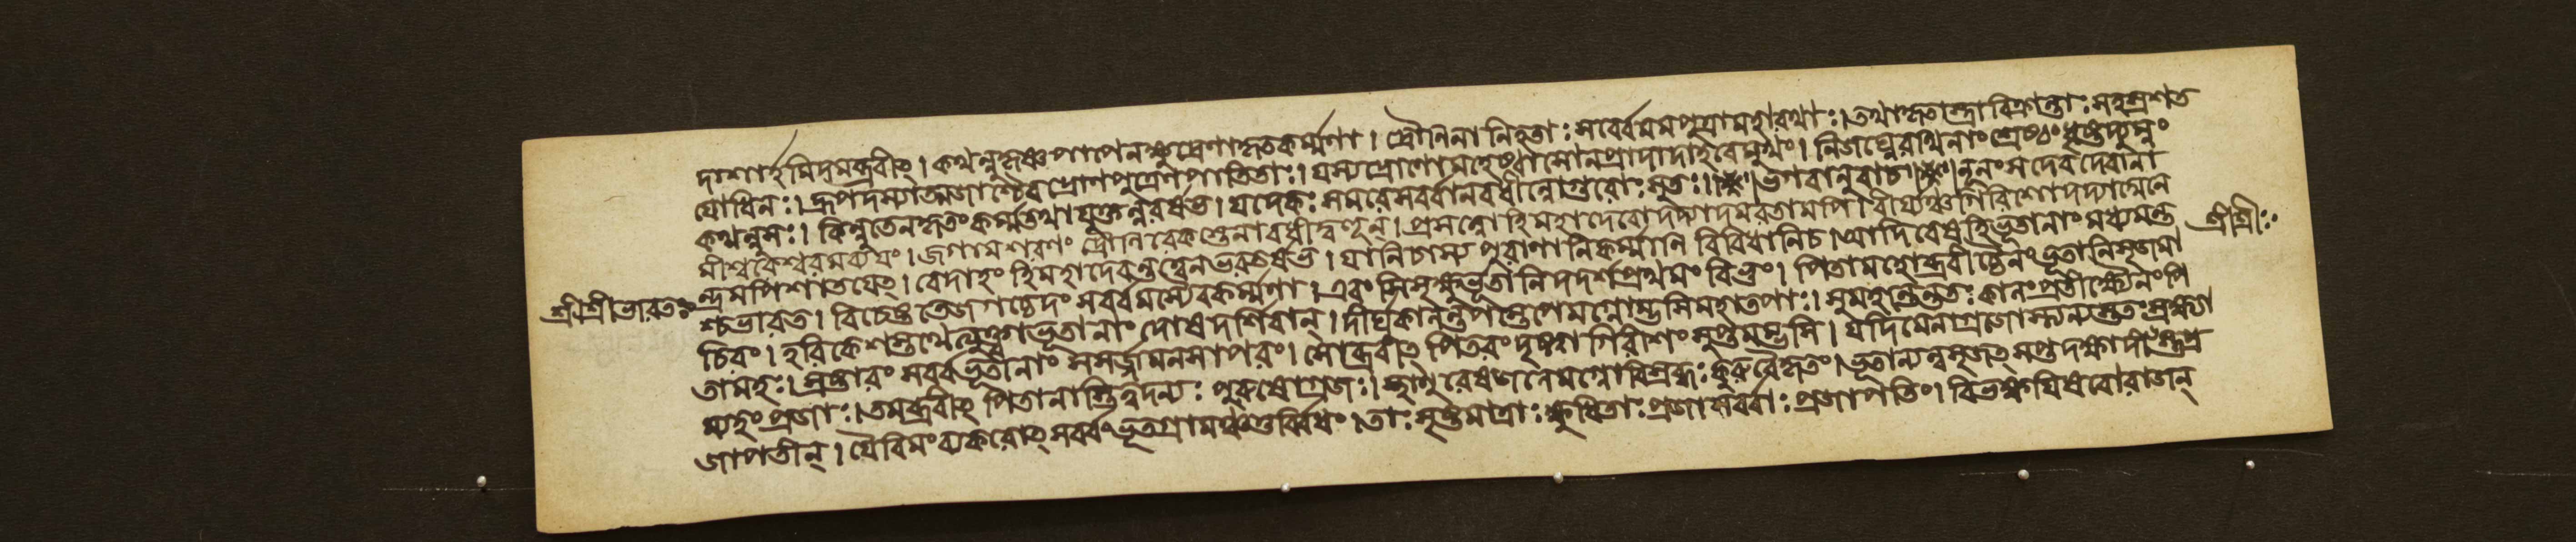 দাশার্হমিদমব্রবীৎ। কথন্নুকৃষ্ণপাপেনক্ষুদ্রেণাকৃতকর্ম্মণা। দ্রৌণিনা নিহতাঃ সর্ব্বেমমপুত্রামহারথাঃ। তথাকৃতাস্ত্রাবিক্রান্তাঃ সহস্রশত
যোধিনঃ। দ্রুপদস্যাত্মজাশ্চৈবদ্রোণপুত্রেণপাতিতাঃ। যস্যদ্রোণোমহেষ্বাসোনপ্রাদাদাহবেমুখং। নিজঘ্নেরথিনাংশ্রেষ্ঠং ধৃষ্টদ্যুম্নং
কথন্নুসঃ। কিন্নুতেনকৃতংকর্ম্মতথাযুক্তন্নরর্ষভ। যদেকঃ সমরেসর্ব্বানবধীন্নোগুরোঃ সুতঃ।। ভগবানুবাচ।। নূনংসদেবদেবানা
মীশ্বরেশ্বরমব্যয়ং। জগামশরণং দ্রৌণিরেকস্তেনাবধীদ্বহূন্। প্রসন্নোহিমহাদেবোদদ্যাদমরতামপি। বীর্য্যঞ্চগিরিশোদদ্যাদ্যেনে
শ্রীশ্রীঃ
শ্রীশ্রীভারতঃ
ন্দ্রমপিশাতয়েৎ। বেদাহং হিমহাদেবন্তত্ত্বেনভরতর্ষভ। যানিচাস্য পুরাণানিকর্ম্মাণি বিবিধানিচ। আদিরেষহিভূতানাং মধ্যমন্ত
শ্চভারত। বিচেষ্টতেজগচ্চেদং সর্ব্বমস্যৈবকর্ম্মণা। এবং সিসৃক্ষুর্ভূতানিদদর্শপ্রথমং বিভুং। পিতামহোব্রবীচ্চৈনং ভূতানিসৃজমা
চিরং। হরিকেশস্তথেত্যুক্ত্বাভূতানাং দোষদর্শিবান্। দীর্ঘকালন্তপস্তেপেমগ্নোম্ভসিমহাতপাঃ। সুমহান্তন্ততঃ কালংপ্রতীক্ষ্যৈনংপি
তামহঃ। স্রষ্টারং সর্ব্বভূতানাং সসর্জ্জমনসাপরং। সোব্রবীৎ পিতরং দৃষ্ট্বা গিরিশং সুপ্তমম্ভসি। যদিমেনাগ্রজোস্ত্যন্যস্ততঃস্রক্ষ্যা
ম্যহং প্রজাঃ। তমব্রবীৎ পিতানাস্তিত্বদন্যঃ পুরুষোগ্রজঃ। স্থাণুরেষজলেমগ্নোবিস্রব্ধঃ কুরুবৈকৃতং। ভূতান্যন্বসৃজৎ সপ্তদক্ষাদীংস্তুপ্র
জাপতীন্। যৈরিমংব্যকরোৎ সর্ব্বংভূতগ্রামঞ্চতুর্ব্বিধং। তাঃ সৃষ্টমাত্রাঃ ক্ষুধিতাঃ প্রজাঃসর্ব্বাঃ প্রজাপতিং। বিভক্ষয়িষবোরাজন্